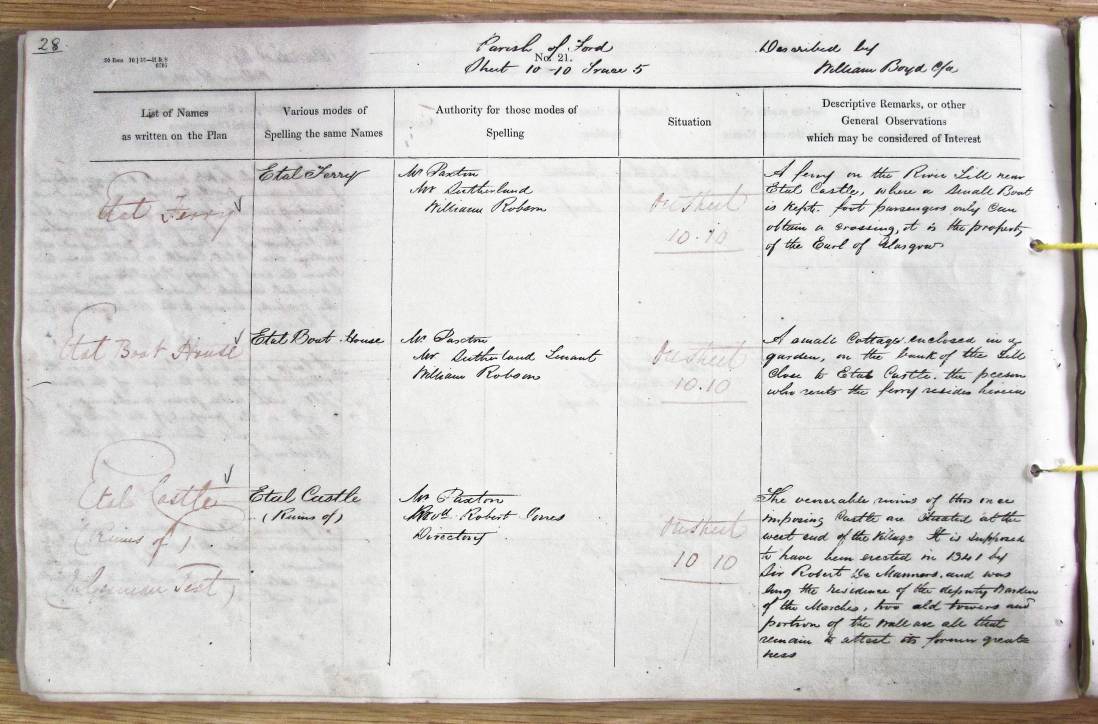 28
Parish of Ford
No. 21.
Sheet 10-10 Trace 5
Described by
William Boyd C/a
List of Names
as written on the Plan
Various modes of
Spelling the same Names
Authority for those modes of
Spelling
Situation
Descriptive Remarks, or other
General Observations
which may be considered of Interest
Etal Ferry
Etal Ferry
Mr Paxton
Mr Sutherland
William Robson
On Sheet
10.10
A ferry on the River Till near
Etal Castle, where a small Boat
is kept. foot passengers only can
obtain a crossing, it is the property
of the Earl of Glasgow
Etal Boat House
Etal Boat House
Mr Paxton
Mr Sutherland Tenant
William Robson
On Sheet
10.10
A small Cottage enclosed in a
garden, on the bank of the Till
Close to Etal Castle. the person
who rents the ferry resides herein
Etal Castle
(Ruins of)
Text)
Etal Castle
(Ruins of)
Mr Paxton
Revd Robert Jones
Directory
On Sheet
10 10
The venerable ruins of this once
imposing Castle are situated at the
west end of the Village It is supposed
to have been erected in 1341 by
Sir Robert De Manners. and was
long the residence of the deputy Warden
of the Marches, two old towers and
portion of the wall are all that
remain to attest its former great
ness